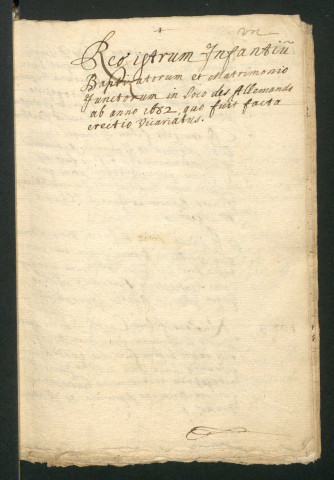 vn
Registrum Infantiũ
Baptizatorum et Matrimonio
Junctorum in Loco des Allemands
ab anno 1682 quo fuit facta
erectio Vicariatus.